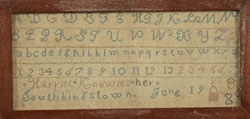 A B C D E F G H I J K L M N
O P Q R S T U V W X Y Z
abcdefghijklmnopqrstuvwxyz
1 2 3 4 5 6 7 8 9 10 11 12 13
Harriet Knowles her
Southkingstown June 19